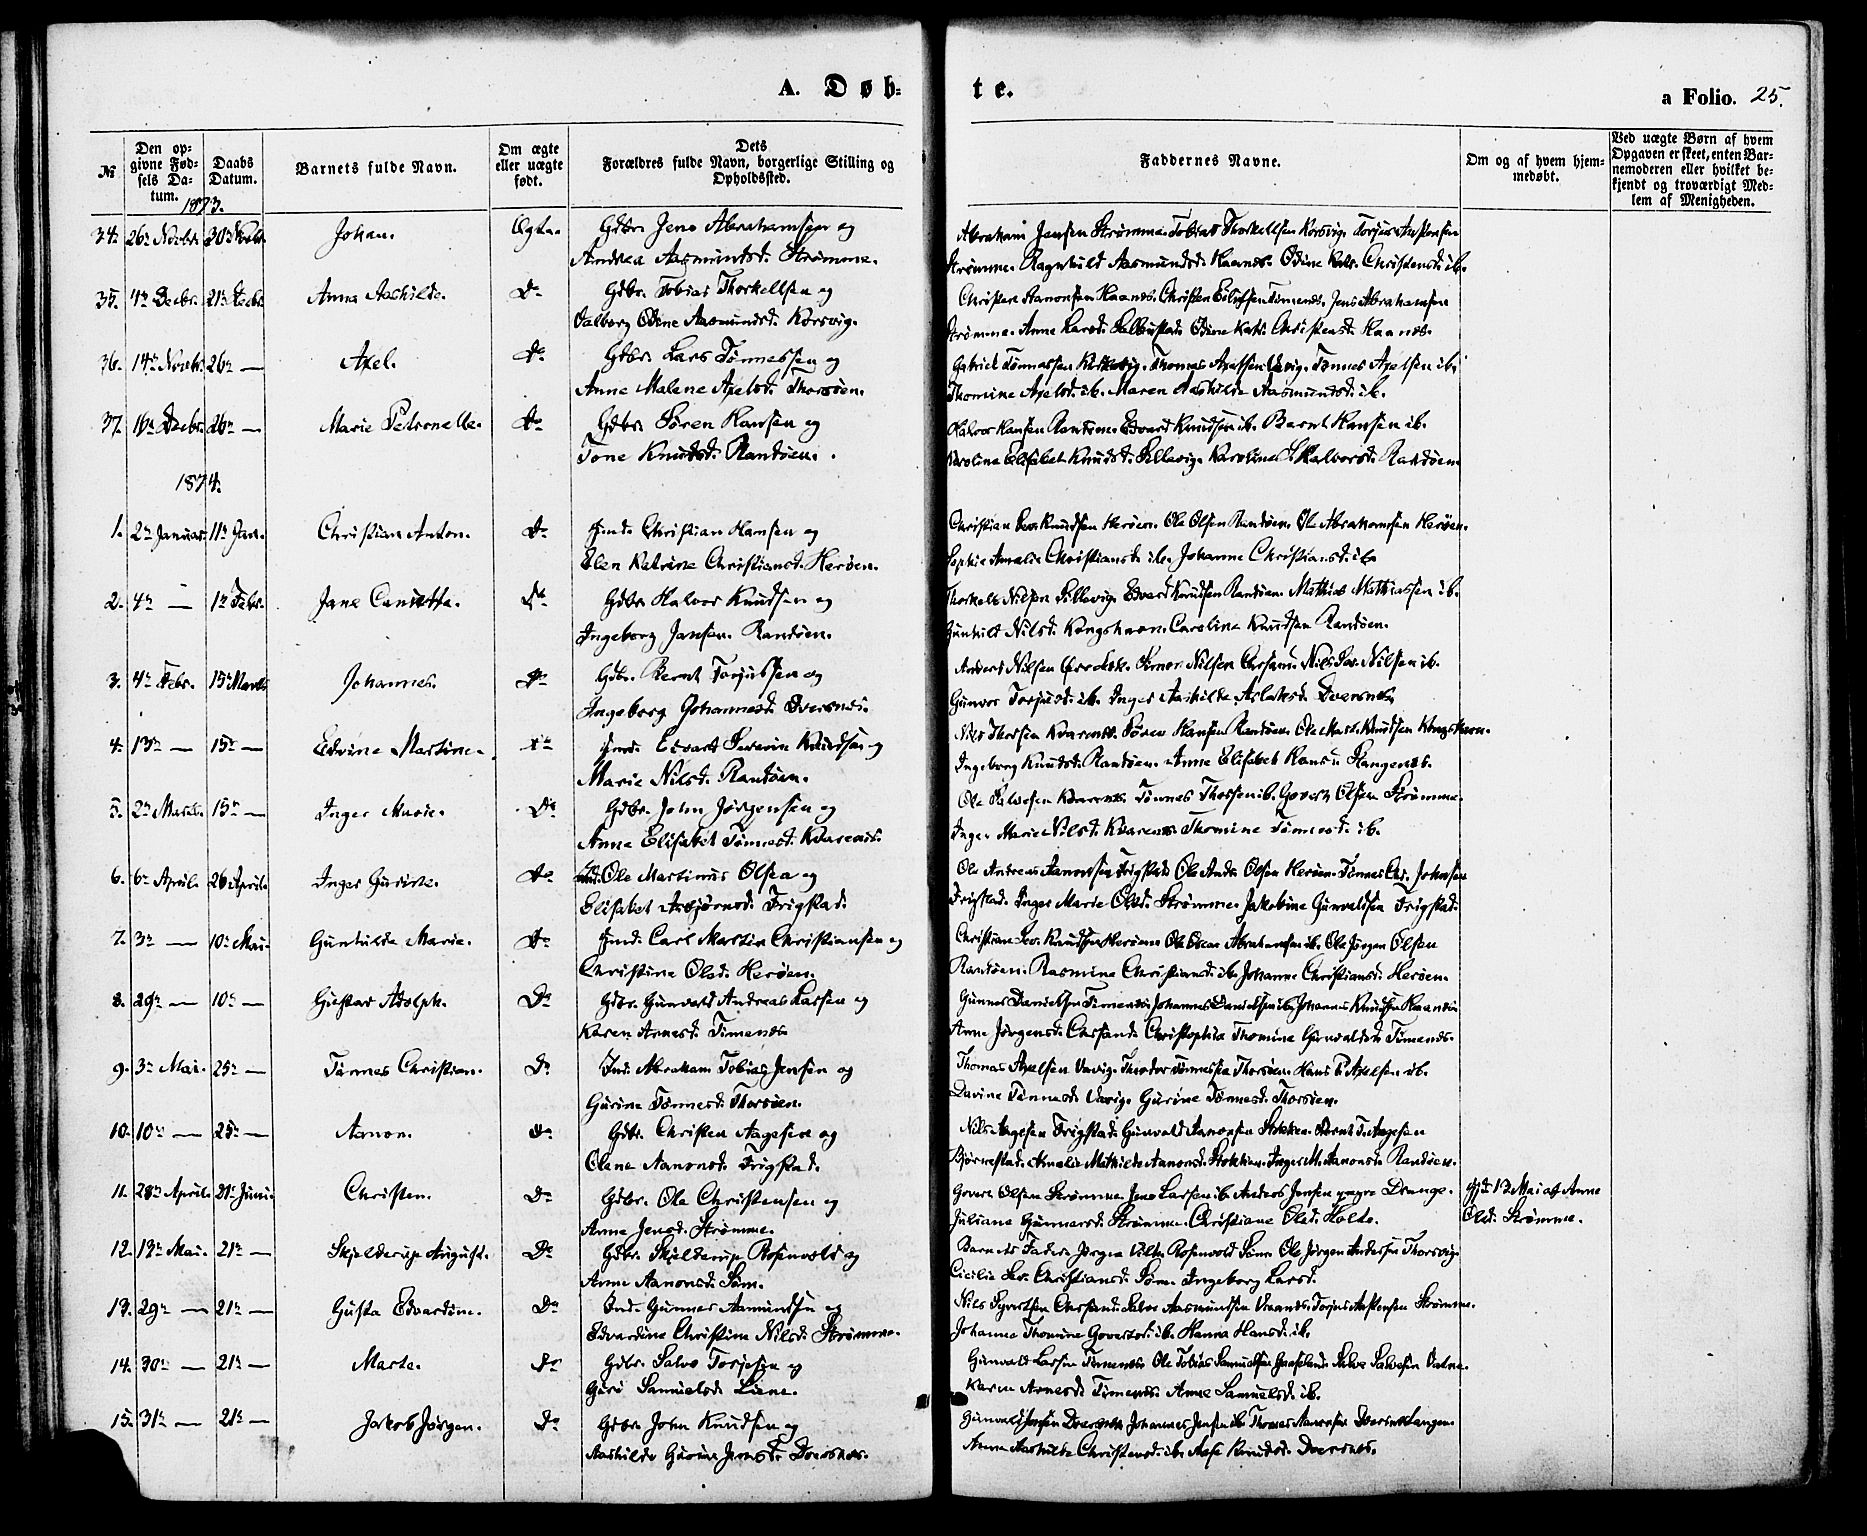 A. Døb-
te.
a Folio. 25.
№
Den opgivne Fødsels Datum.
Daabs Datum.
Barnets fulde Navn.
Om ægte eller uægte født.
Dets Forældres fulde Navn, borgerlige Stilling og Opholdssted.
Faddernes Navne.
Om og af hvem hjemmedøbt.
Ved uægte Børn af hvem Opgaven er skeet, enten Barnemoderen eller hvilket bekjendt og troværdigt Medlem af Menigheden.
1873.
34. 26de Novbr. 30te Novbr. Johan. Ægte. Gdbr. Jens Abrahamsen og
Andrea Aasmundsd. Strømme.
Abraham Jensen Strømme. Tobias Thorkellsen Korsvig. Torjus Anstensen
Strømme. Ragnhild Aasmundsd. Haanes. Odine Kath. Christensd. ib.
35. 4de Decbr. 21de Decbr. Anna Aashilde. Do Gdbr. Tobias Thorkellsen og
Valborg Odine Aasmundsd. Korsvig.
Christen Aanonsen Haanes. Christen Eilefsen Timenes. Jens Abrahamsen
Strømme. Anne Larsd. Odine Kath. Christensd. Haanes.
36. 14de Novbr. 26de — Axel. Do Gdbr. Lars Tønnessen og
Anne Malene Axelsd. Thorsøen.
Gabriel Tønnessen Thomas Axelsen Usvig. Tønnes Axelsen ib.
Thomine Axelsd. ib. Maren Aashilde Aasmundsd. ib.
37. 16de Decbr. 26de — Marie Petronelle. Do Gdbr. Søren Hansen og
Tone Knudsd. Randøen.
Halvor Hansen Randøen. Edvard Knudsen ib. Bernt Hansen ib.
Karoline Elisabet Knudsd. Sillevig. Karoline Halvorsd. Randøen.
1874.
1. 2de Januar. 11te Jan. Christian Anton. Do Christian Hansen og
Elen Katrine Christiansd. Herøen.
Christian Sev. Knudsen Herøen. Ole Olsen Randøen. Ole Abrahamsen Herøen.
Sophie Amalie Christiansd. ib. Johanne Christiansd. ib.
2. 4de — 1te Febr. Jane Do Gdbr. Halvor Knudsen og
Ingeborg Jansen. Randøen.
Thorkell Nilsen Sillevig. Edvard Knudsen Randøen. Mathias Mathiassen ib.
Gunhild Nilsd. Kongshavn. Caroline Knudsen Randøen.
3. 4de Febr. 15de Marts Johannes. Do Gdbr. Bernt Torjussen og
Ingeborg Johannesd. Dversnes.
Anders Nilsen Nilsen Chrsand. Nils Nilsen ib.
Gunvor Torjusd. ib. Inger Aashilde Aslaksd. Dversnes.
4. 13de — 15de — Edvine Martine. Do Edvart Severin Knudsen og
Marie Nilsd. Randøen.
Nils Thorsen Kvarenes. Søren Hansen Randøen. Ole Mart. Knudsen Kongshavn.
Ingeborg Knudsd. Randøen. Anne Elisabet
5. 2de Marts. 15de — Inger Marie. Do Gdbr. John Jørgensen og
Anne Elisabet Tønnesd. Kvarenes.
Ole Salvesen Kvarenes. Tønnes Thorsen ib. Govert Olsen Strømme.
Inger Marie Nilsd. Kvarenes. Thomine Tønnesd. ib.
6. 6te April. 26 April. Inger Gurine. Do Ole Martinus Olsen og
Elisabet Asbjørnsd. Frigstad.
Ole Andreas Aanonsen Frigstad. Ole Andr. Olsen Herøen. Tønnes Chr. Johnsen
Frigstad. Inger Marie Olsd. Strømme. Jakobine Gunvaldsen Frigstad.
7. 3de — 10de Mai. Gunhilde Marie. Do Carl Martin Christiansen og
Christine Olsd. Herøen.
Christian Sev. Knudsen Herøen. Ole Oscar Abrahamsen ib. Ole Jørgen Olsen
Randøen. Rasmine Christiansd. ib. Johanne Christiansd. Herøen.
8. 29de — 10de — Gustav Adolph. Do Gdbr. Gunvald Andreas Larsen og
Karen Arnesd. Timenes
Gunnes Danielsen Timenes. Johannes Danielsen ib. Johannes Knudsen
Anne Jørgensd. Chrsand. Christophia Thomine Gunvaldsd. Timenes.
9. 3de Mai. 25de — Tønnes Christian. Do Ind. Abraham Tobias Jensen og
Gurine Tønnesd. Thorsøen.
Thomas Axelsen Usvig. Theodor Tønnessen Thorsøen. Hans P. Axelsen ib.
Davine Tønnesd. Usvig. Gurine Tønnesd. Thorsøen.
10. 10de — 25de — Aanon. Do Gdbr. Christen Aagesen og
Olene Aanonsd. Frigstad.
Nils Aagesen Frigstad. Gunvald Aanonsen Stokken. Bernt T. Aagesen
Bjørnestad. Amalie Mathilde Aanonsd. Stokken. Inger M. Aanonsd. Randøen.
11. 28de April. 21de Juni. Christen. Do Gdbr. Ole Christensen og
Anne Jensd. Strømme.
Govert Olsen Strømme. Jens Larsen ib. Anders Jensen yngre Drange.
Juliane Gunnersd. Strømme. Christiane Olsd. Holte.
Hjdt 13 Mai af Anne
Olsd. Strømme.
12. 13de Mai. 21de — Skjelderup August. Do Gdbr. Skjelderup Rosenvold og
Anne Aanonsd. Søm.
Barnets Fader. Jørgen Vilh. Rosenvold Søm. Ole Jørgen Andersen Thorsvig.
Cicilie Sev. Christiansd. Søm. Ingeborg Larsd.
13. 29de — 21de — Gusta Edvardine. Do Ind. Gunner Aamundsen og
Edvardine Christine Nilsd. Strømme.
Nils Syvertsen Chrsand. Salve Aasmundsen Vraanes. Torjus Anstensen Strømme.
Johanne Thomine Govertsd. ib. Hanna Hansd. ib.
14. 30de — 21de — Marta. Do Gdbr. Salve Torjesen og
Guro Samuelsd. Liene.
Gunvald Larsen Timenes. Ole Tobias Samuelsen Salve Salvesen Vatne.
Karen Arnesd. Timenes. Anne Samuelsd. ib.
15. 31te — 21de — Jakob Jørgen. Do Gdbr. John Knudsen og
Aashilde Gurine Jensd. Dversnes.
Gunvald Jensen Dversnes. Johannes Jensen ib. Thomas Aanonsen Dversnes
Anne Aashilde Christensd. ib. Aase Knudsd. Dversnes.